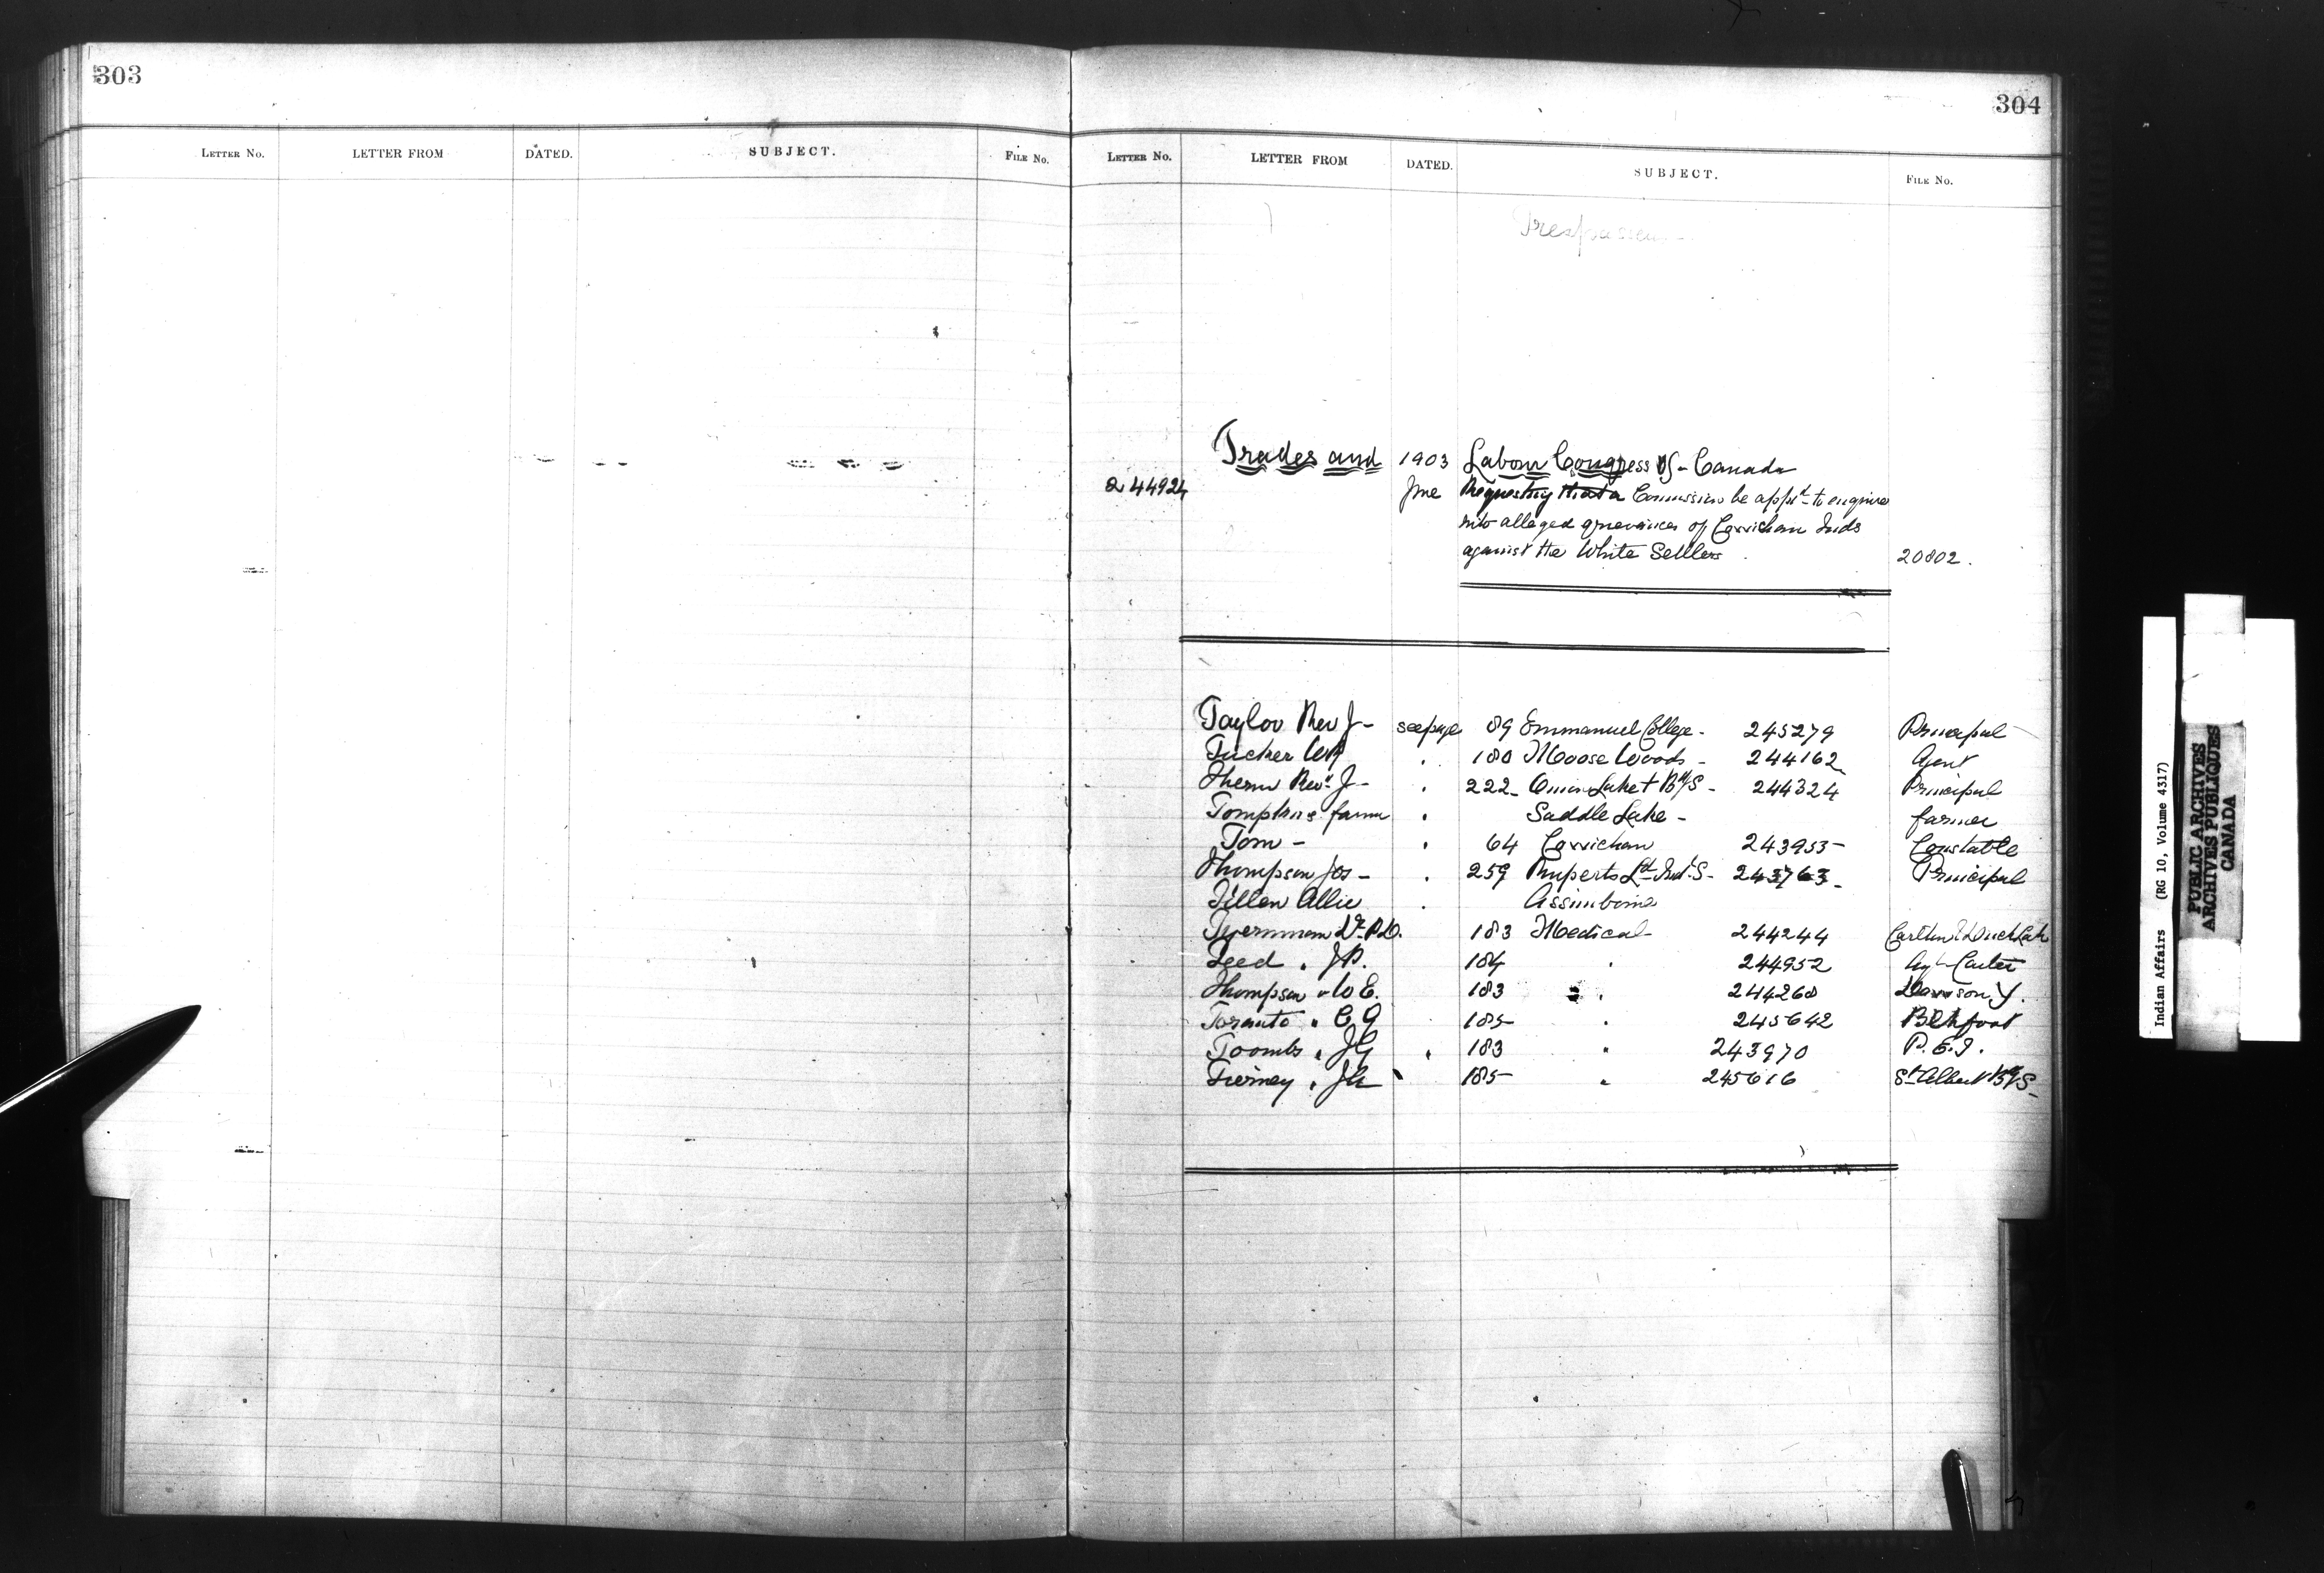 303
LETTER No. LETTER FROM DATED. SUBJECT. FILE No.
304
LETTER No. LETTER FROM DATED. SUBJECT. FILE No.
Trades and 1903 Labour Congress of Canada
244924 June Requesting that a Commission be appt to enquire
into alleged grievances of Cowichan Inds
against the White Settlers 20802.
Taylor Rev J - see page 89 Emmanuel College - 245279 Principal
Tucker 180 Moose Woods - 244162 Agent
Revd J - 222 - Onion Lake B/S - 244324 Principal
Tompkins farmer Saddle Lake - farmer
Tom - 64 Cowichan 243953 - Constable
Thompson Jos - 259 Ruperts Ld Ind. S - 243763 - Principal
Tillen Allie Assiniboine
Tyerman Dr P.D. 183 Medical 244244 Carlton & Duck Lake
J.P. 184 " 244952
Thompson " W E. 183 " 244260
" C G 185 " 245642
Toombs " J G " 183 " 243970 P. E. I.
Tierney " 185 " 245616 St Albert B/S -
Indian Affairs (RG 10, Volume 4317)
PUBLIC ARCHIVES
ARCHIVES PUBLIQUES
CANADA